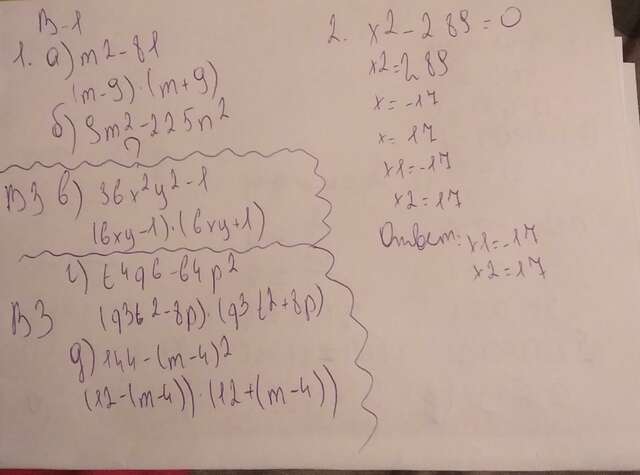 В-1
1. а) m2-81
(m-9)·(m+9)
б) 9m2-225n2
?
В3 в) 36x2y2-1
(6xy-1)·(6xy+1)
г) t4q6-64p2
В3 (q3t2-8p)·(q3t2+8p)
д) 144-(m-4)2
(12-(m-4))·(12+(m-4))
2. x2-289=0
x2=289
x=-17
x=17
x1=-17
x2=17
Ответ: x1=-17
x2=17